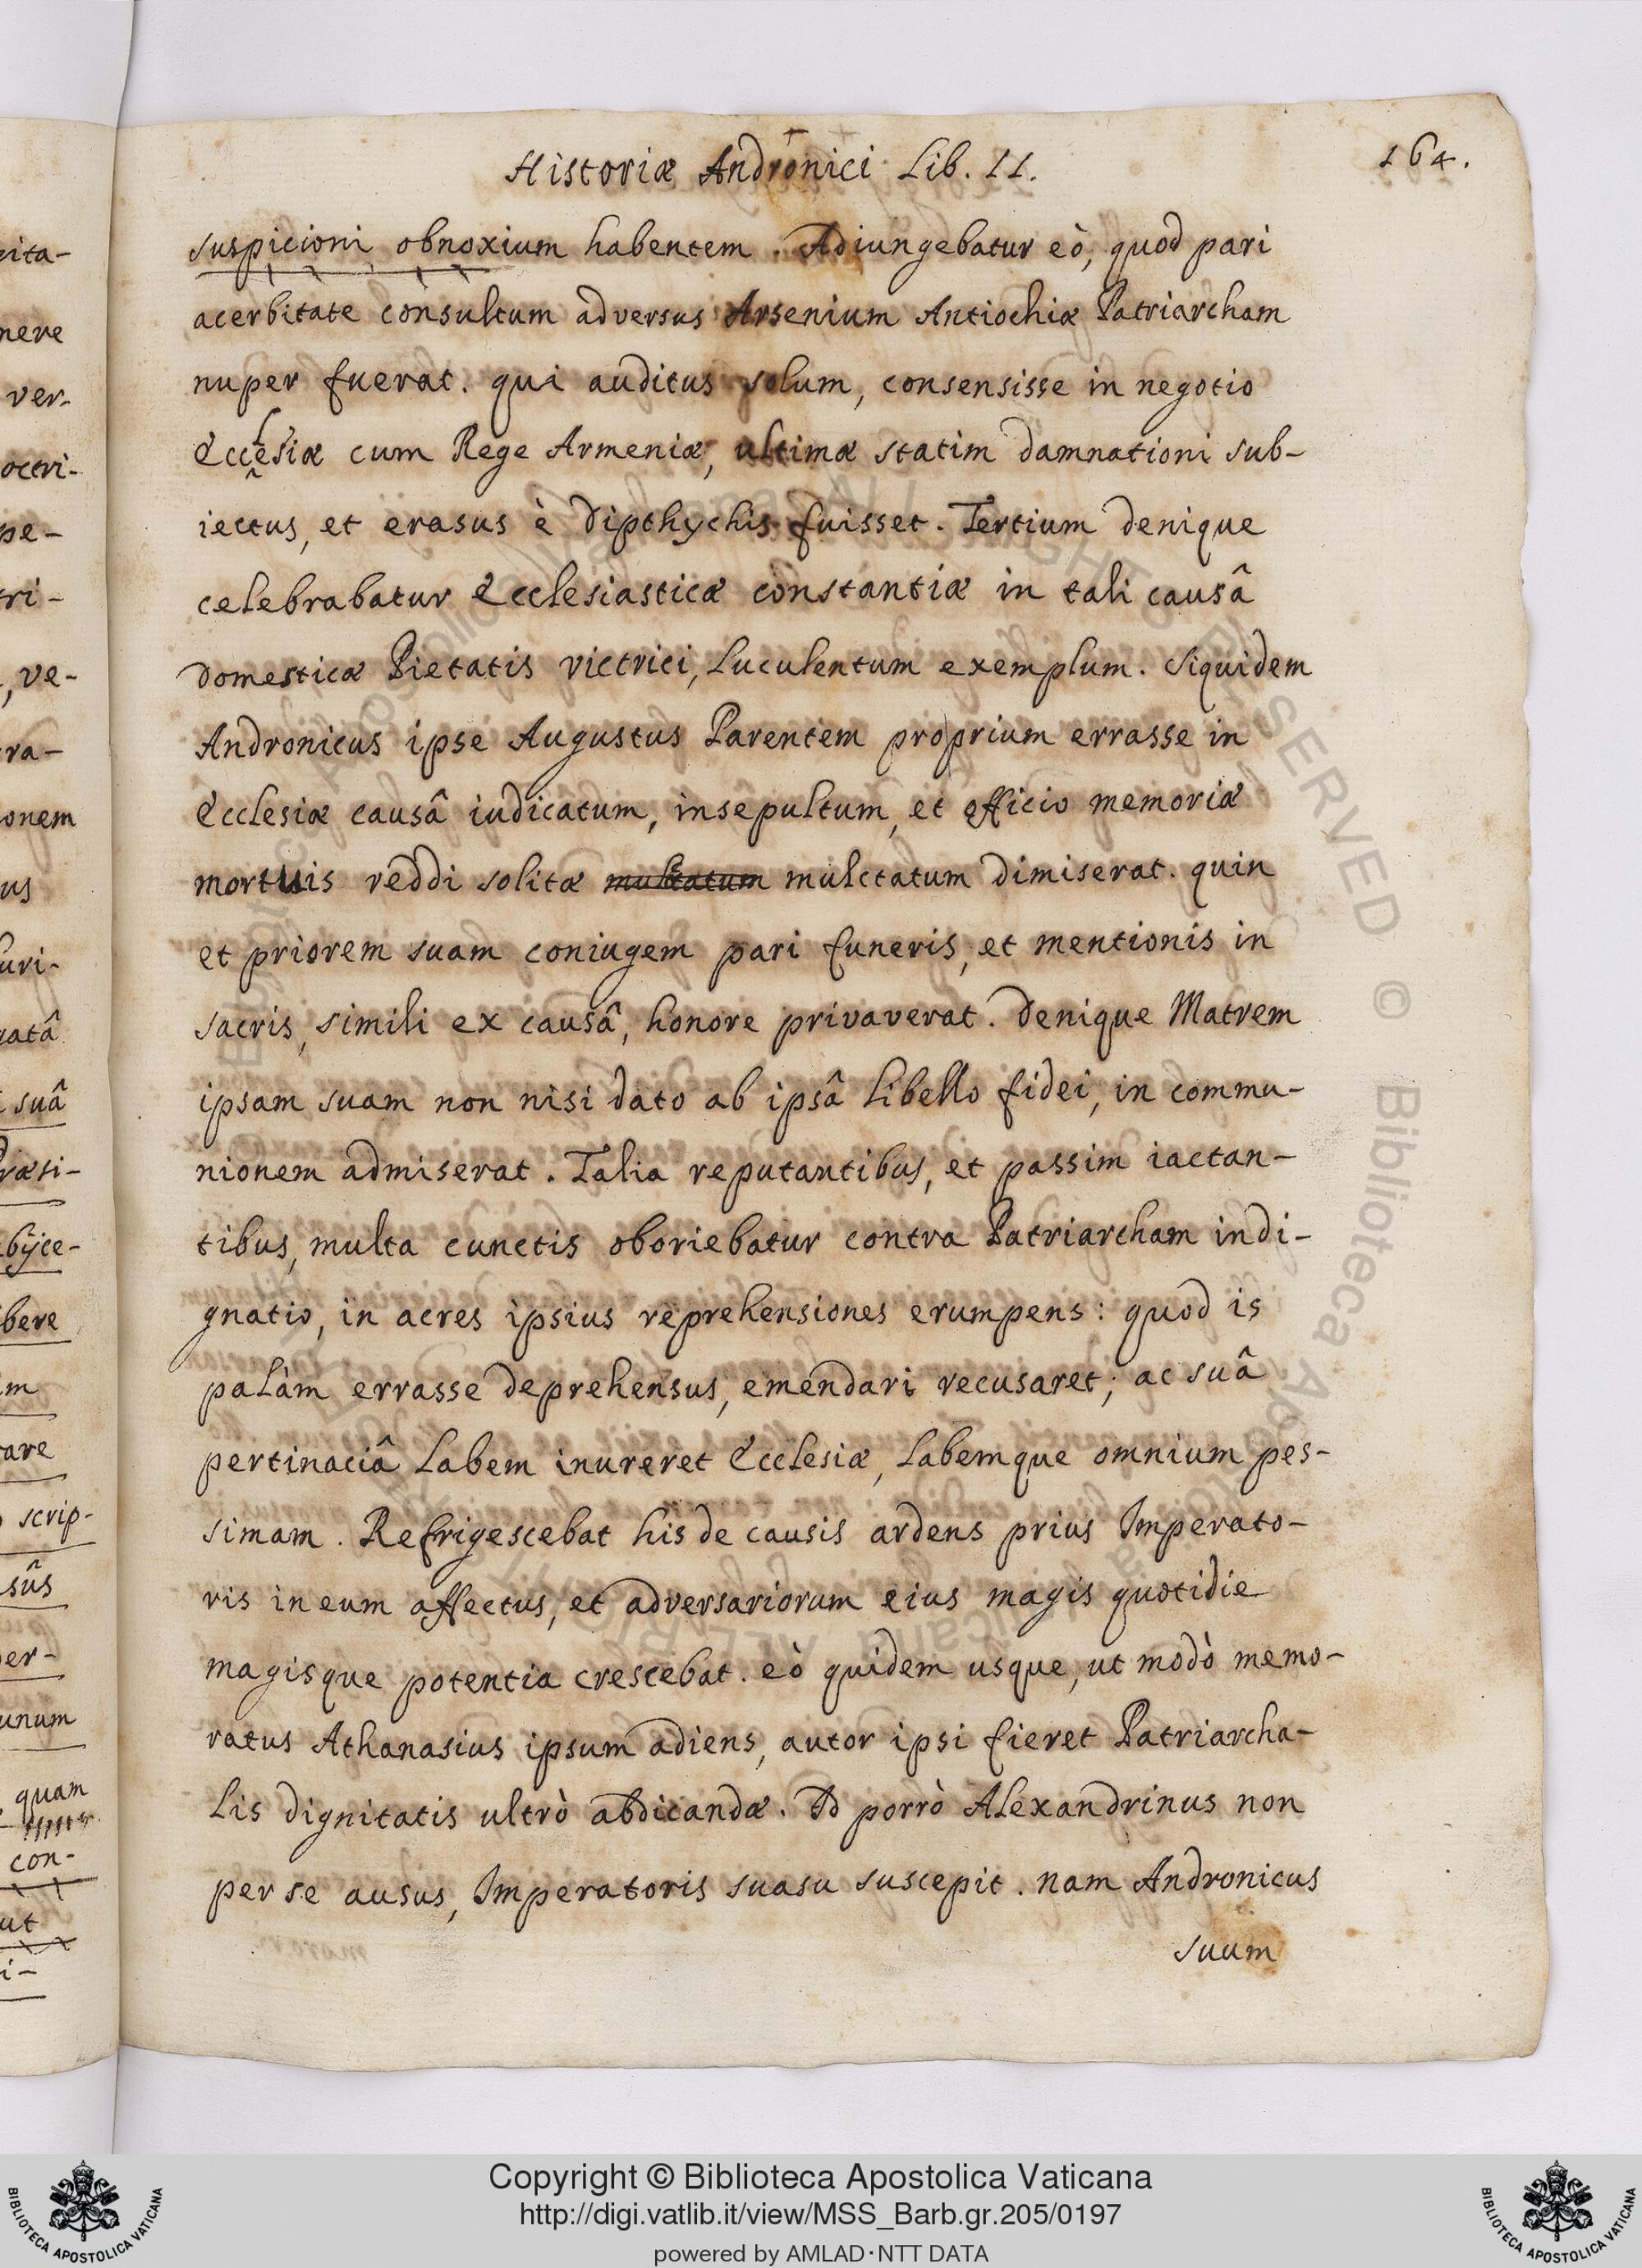 Historiæ Andronici Lib. II.
164.
suspicioni obnoxium habentem. Adiungebatur eò, quod pari
acerbitate consultum adversus Arsenium Antiochiæ Patriarcham
nuper fuerat. qui auditus solum, consensisse in negotio
Ecclesiæ cum Rege Armeniæ, ultimæ statim damnationi sub-
iectus, et erasus è dipthychis fuisset. Tertium denique
celebrabatur Ecclesiasticæ constantiæ in tali causâ
domesticæ Pietatis victrici, luculentum exemplum. Siquidem
Andronicus ipse Augustus Parentem proprium errasse in
Ecclesiæ causâ iudicatum, insepultum, et officio memoriæ
mortuis reddi solitæ multatum mulctatum dimiserat. quin
et priorem suam coniugem pari funeris, et mentionis in
sacris, simili ex causâ, honore privaverat. Denique Matrem
ipsam suam non nisi dato ab ipsâ libello fidei, in commu-
nionem admiserat. Talia reputantibus, et passim iactan-
tibus, multa cunctis oboriebatur contra Patriarcham indi-
gnatio, in acres ipsius reprehensiones erumpens: quod is
palàm errasse deprehensus, emendari recusaret; ac suâ
pertinaciâ labem inureret Ecclesiæ, labemque omnium pes-
simam. Refrigescebat his de causis ardens prius Imperato-
ris in eum affectus, et adversariorum eius magis quotidie
magisque potentia crescebat. eò quidem usque, ut modò memo-
ratus Athanasius ipsum adiens, autor ipsi fieret Patriarcha-
lis dignitatis ultrò abdicandæ. Id porrò Alexandrinus non
per se ausus, Imperatoris suasu suscepit. nam Andronicus
suum
Copyright © Biblioteca Apostolica Vaticana
http://digi.vatlib.it/view/MSS_Barb.gr.205/0197
powered by AMLAD·NTT DATA
BIBLIOTECA APOSTOLICA VATICANA
BIBLIOTECA APOSTOLICA VATICANA